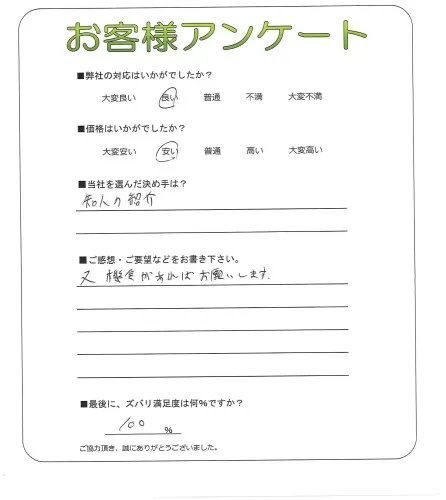 お客様アンケート
■弊社の対応はいかがでしたか？
大変良い 良い 普通 不満 大変不満
■価格はいかがでしたか？
大変安い 安い 普通 高い 大変高い
■当社を選んだ決め手は？
知人の紹介
■ご感想・ご要望などをお書き下さい。
又機会があればお願いします.
■最後に、ズバリ満足度は何％ですか？
100 ％
ご協力頂き、誠にありがとうございました。